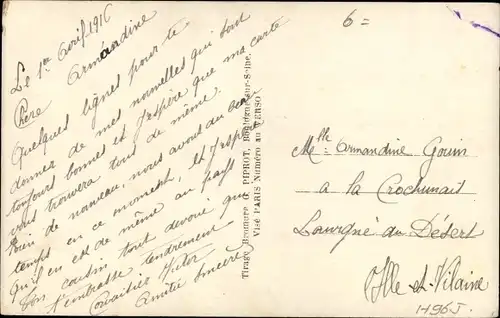 Le 1er Avril 1916
Chère Armandine
Quelques lignes pour te
donner de mes nouvelles qui sont
toujours bonnes et J'espère que ma carte
vous trouvera tout de même.
Rien de nouveau, nous avons du beau
temps en ce moment, et J'espère
qu'il en est de même au pays
Ton cousin tout dévoué qui
t'embrasse tendrement
Victor
Amitié sincère
Tirage Bromure G. PIPROT, Boulogne-sur-Seine.
Visé PARIS Numéro au VERSO
6=
Melle Armandine Gouin
a la Crochunait
Louvigné du Désert
Ille-et-Vilaine
H96J